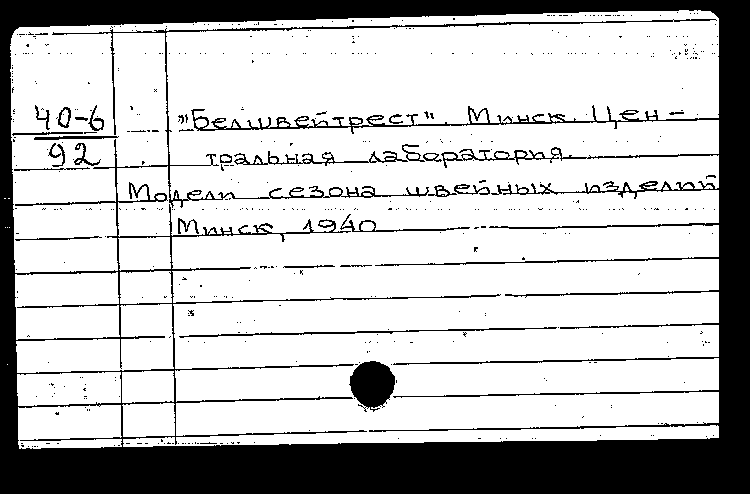 40-6
92
"Белшвейтрест". Минск. Цен-
тральная лаборатория.
Модели сезона швейных изделий
Минск, 1940